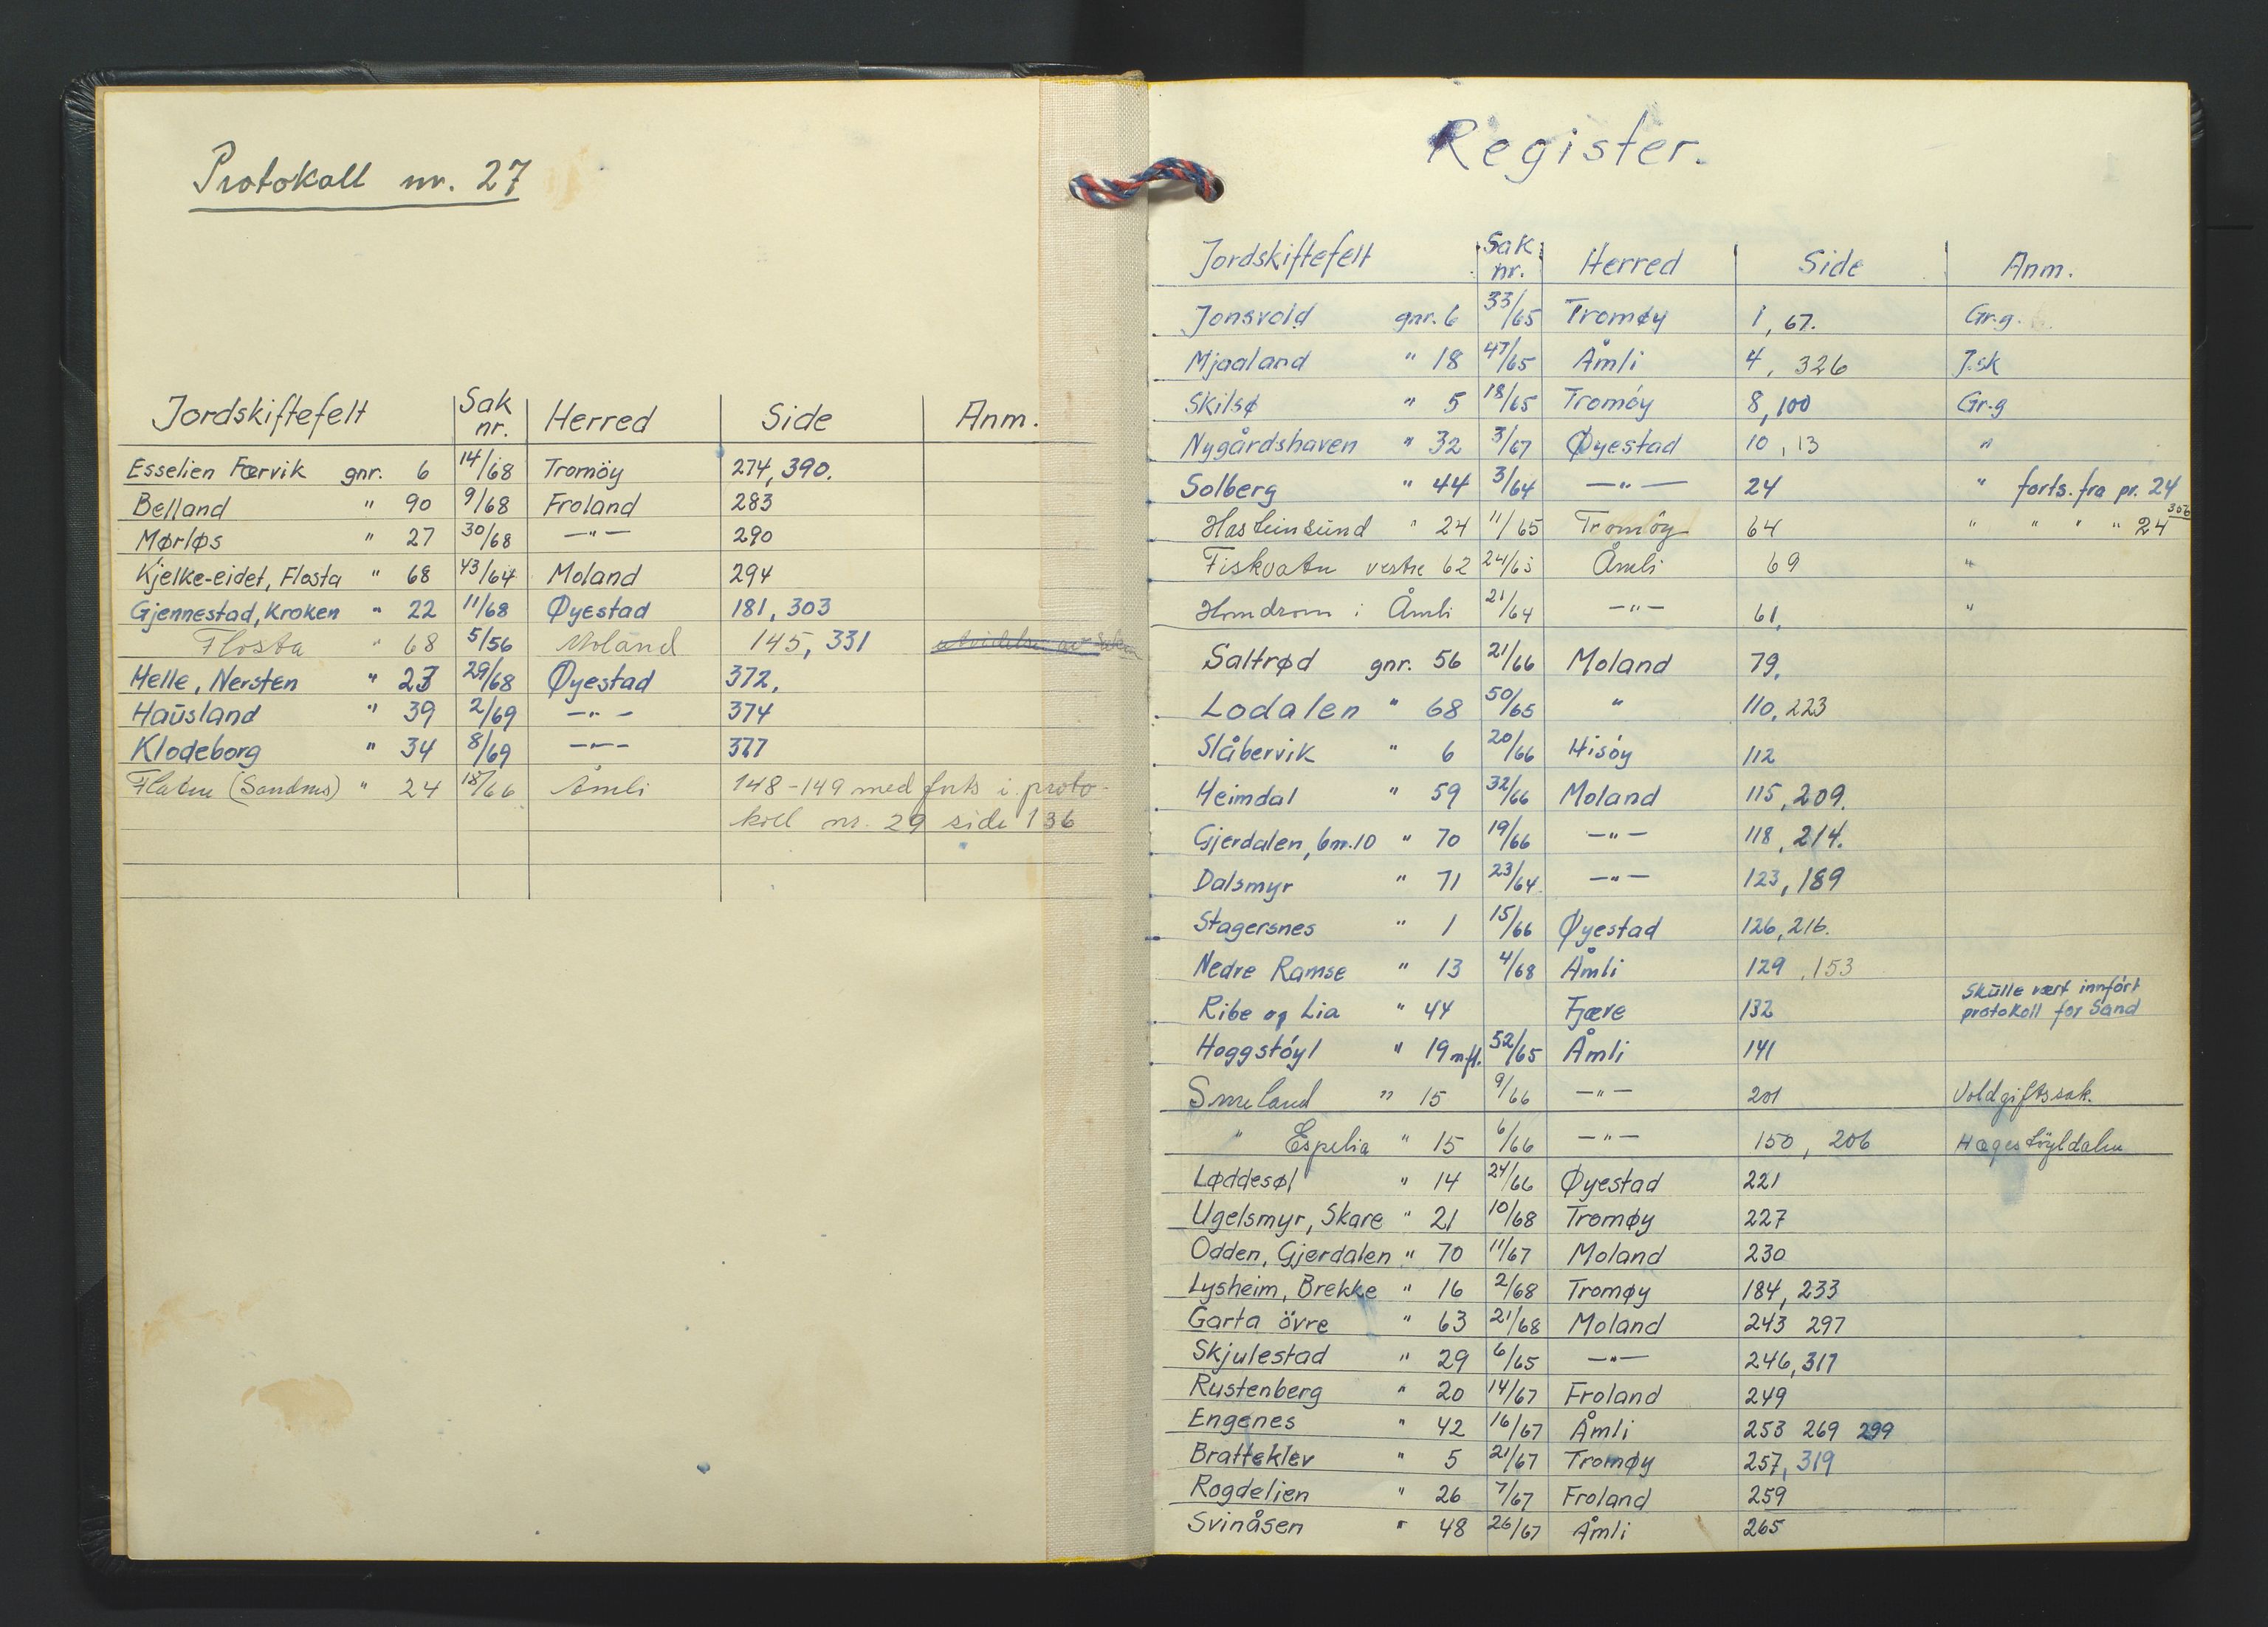 Protokoll nr. 27
Jordskiftefelt Sak nr. Herred Side Anm.
Esselien Færvik gnr. 6 14/68 Tromöy 274, 390.
Belland " 90 9/68 Froland 283
Mørløs " 27 30/68 —"— 290
Kjelke-eidet, Flosta " 68 43/64 Moland 294
Gjennestad, Kroken " 22 11/68 Øyestad 181, 303
Flosta " 68 5/56 Moland 145, 331 utvidelse av saken
Helle, Nersten " 23 29/68 Øyestad 372,
Hausland " 39 2/69 —"— 374
Klodeborg " 34 8/69 —"— 377
Flaten (Sandnes) " 24 18/66 Åmli 148-149 med forts i proto-
koll nr. 29 side 136
Register.
Jordskiftefelt Sak nr. Herred Side Anm.
Jonsvold gnr. 6 33/65 Tromøy 1, 67. Gr.g.
Mjaaland " 18 47/65 Åmli 4, 326 J.sk
Skilsø " 5 18/65 Tromóy 8, 100 Gr.g
Nygårdshaven " 32 3/67 Øyestad 10, 13 "
Solberg " 44 3/64 —"— 24 " forts. fra pr. 24
Hasteinsund " 24 11/65 Tromöy 64 " " " " 24 356
Fiskvatn vestre 62 24/65 Åmli 69 "
Homdrom i Åmli 21/64 —"— 61, "
Saltrød gnr. 56 21/66 Moland 79.
Lodalen " 68 50/65 " 110, 223
Slåbervik " 6 20/66 Hisóy 112
Heimdal " 59 32/66 Moland 115, 209.
Gjerdalen, bnr.10 " 70 19/66 —"— 118, 214.
Dalsmyr " 71 23/64 —"— 123, 189
Stagersnes " 1 15/66 Øyestad 126, 216.
Nedre Ramse " 13 4/68 Åmli 129, 153
Ribe og Lia " 44 Fjære 132 Skulle vært innfört
protokoll for Sand
Hoggstóyl " 19 m.fl. 52/65 Åmli 141
Smeland " 15 9/66 —"— 201 Voldgiftssak.
" Espelia " 15 6/66 —"— 150, 206 Hægestöyldalen
Løddesøl " 14 24/66 Øyestad 221
Ugelsmyr, Skare " 21 10/68 Tromøy 227
Odden, Gjerdalen " 70 11/67 Moland 230
Lysheim, Brekke " 16 2/68 Tromøy 184, 233
Garta övre " 63 21/68 Moland 243 297
Skjulestad " 29 6/65 —"— 246, 317
Rustenberg " 20 14/67 Froland 249
Engenes " 42 16/67 Åmli 253 269 299
Bratteklev " 5 21/67 Tromøy 257, 319
Rogdelien " 26 7/67 Froland 259
Svinåsen " 48 26/67 Åmli 265